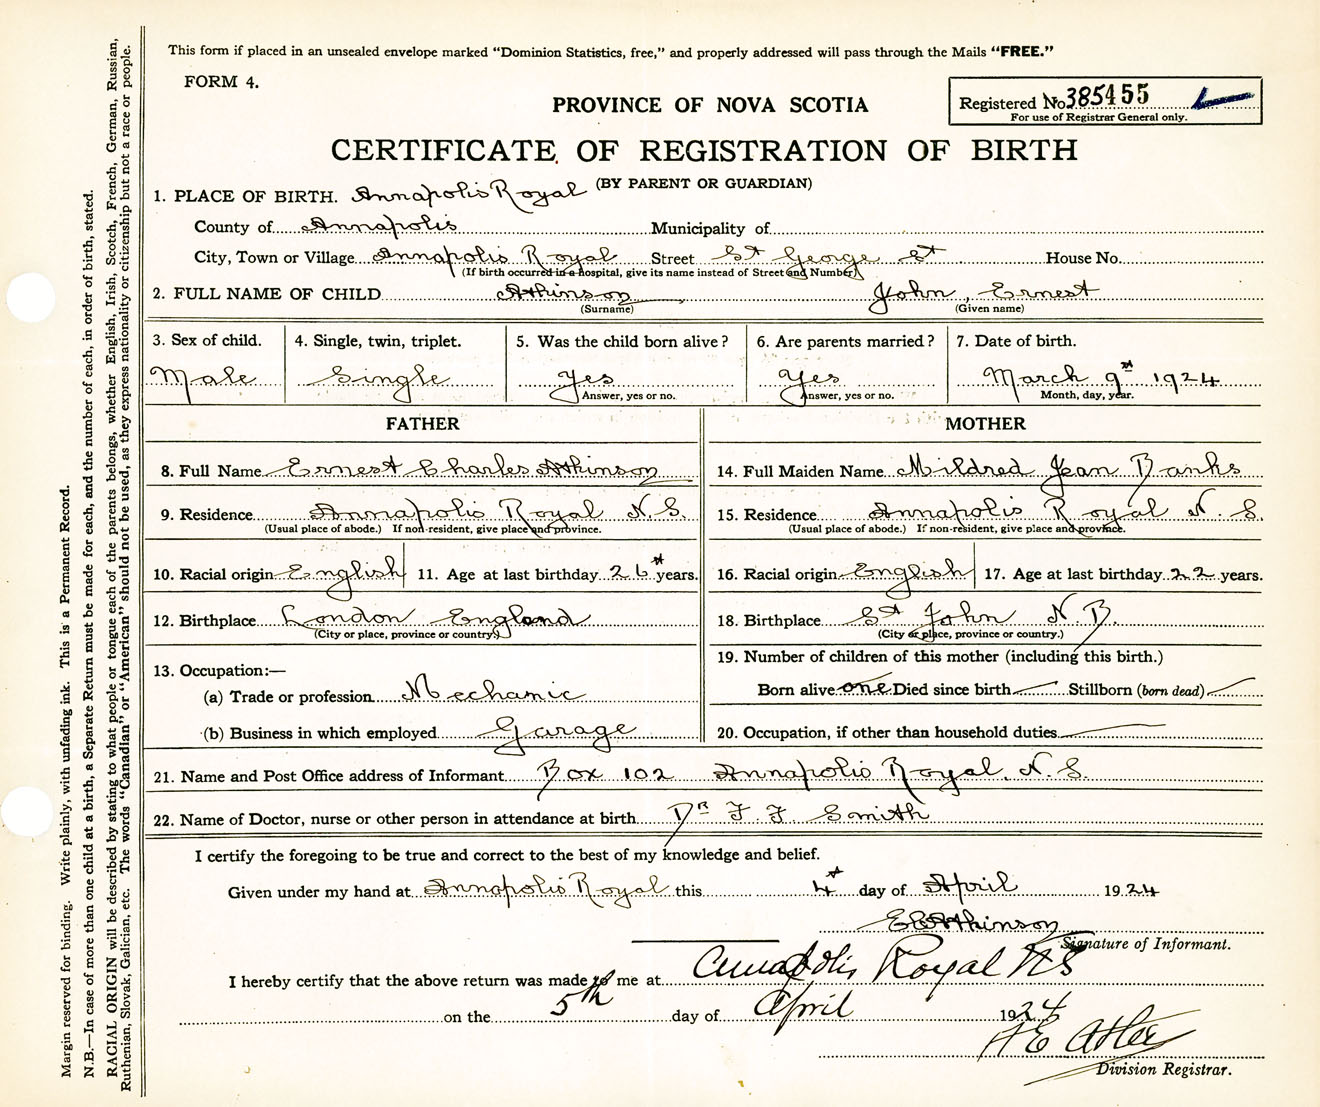 This form if placed in an unsealed envelope marked "Dominion Statistics, free," and properly addressed will pass through the Mails "FREE."
FORM 4.
PROVINCE OF NOVA SCOTIA
Registered No 385455
For use of Registrar General only.
CERTIFICATE OF REGISTRATION OF BIRTH
(BY PARENT OR GUARDIAN)
1. PLACE OF BIRTH. Annapolis Royal
County of Annapolis Municipality of
City, Town or Village Annapolis Royal Street St George St House No.
(If birth occurred in a hospital, give its name instead of Street and Number)
2. FULL NAME OF CHILD Atkinson John, Ernest
(Surname) (Given name)
3. Sex of child. 4. Single, twin, triplet. 5. Was the child born alive? 6. Are parents married? 7. Date of birth.
Male Single Yes Yes March 9th 1924
Answer, yes or no. Answer, yes or no. Month, day, year.
FATHER MOTHER
8. Full Name Ernest Charles Atkinson 14. Full Maiden Name Mildred Jean Banks
9. Residence Annapolis Royal N.S. 15. Residence Annapolis Royal N.S.
(Usual place of abode.) If non-resident, give place and province. (Usual place of abode.) If non-resident, give place and province.
10. Racial origin English 11. Age at last birthday 26 years. 16. Racial origin English 17. Age at last birthday 22 years.
12. Birthplace London England 18. Birthplace St John N.B.
(City or place, province or country.) (City or place, province or country.)
13. Occupation:— 19. Number of children of this mother (including this birth.)
(a) Trade or profession Mechanic Born alive one Died since birth — Stillborn (born dead) —
(b) Business in which employed Garage 20. Occupation, if other than household duties —
21. Name and Post Office address of Informant Box 102 Annapolis Royal, N.S.
22. Name of Doctor, nurse or other person in attendance at birth Dr F F Smith
I certify the foregoing to be true and correct to the best of my knowledge and belief.
Given under my hand at Annapolis Royal this 4th day of April 1924
E C Atkinson
Signature of Informant.
I hereby certify that the above return was made to me at Annapolis Royal NS
on the 5th day of April 1924
H E
Division Registrar.
Margin reserved for binding. Write plainly, with unfading ink. This is a Permanent Record.
N.B.—In case of more than one child at a birth, a Separate Return must be made for each, and the number of each, in order of birth, stated.
RACIAL ORIGIN will be described by stating to what people or tongue each of the parents belongs, whether English, Irish, Scotch, French, German, Russian,
Ruthenian, Slovak, Galician, etc. The words "Canadian" or "American" should not be used, as they express nationality or citizenship but not a race or people.